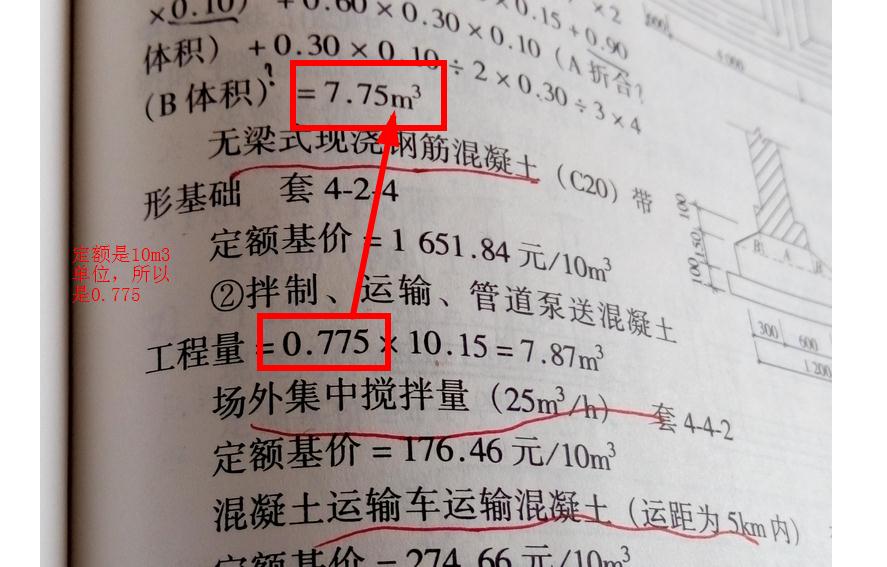 ×0.10) + 0.60 × 0.30 × 0.15 + 0.90 ×2
体积) + 0.30 × 0.30 × 0.10 (A 折合?
(B 体积)? = 7.75m³ + 0.30 × 0.10 ÷ 2 × 0.30 ÷ 3 × 4
无梁式现浇钢筋混凝土 (C20) 带
形基础 套 4-2-4
定额基价 = 1 651.84 元/10m³
②拌制、运输、管道泵送混凝土
工程量 = 0.775 × 10.15 = 7.87m³
场外集中搅拌量 (25m³/h) 套 4-4-2
定额基价 = 176.46 元/10m³
混凝土运输车运输混凝土 (运距为 5km 内)
定额基价 = 274.66 元/10m³
定额是10m3
单位，所以
是0.775
4 000
100
150
100
B
A
B
300
600
1 200